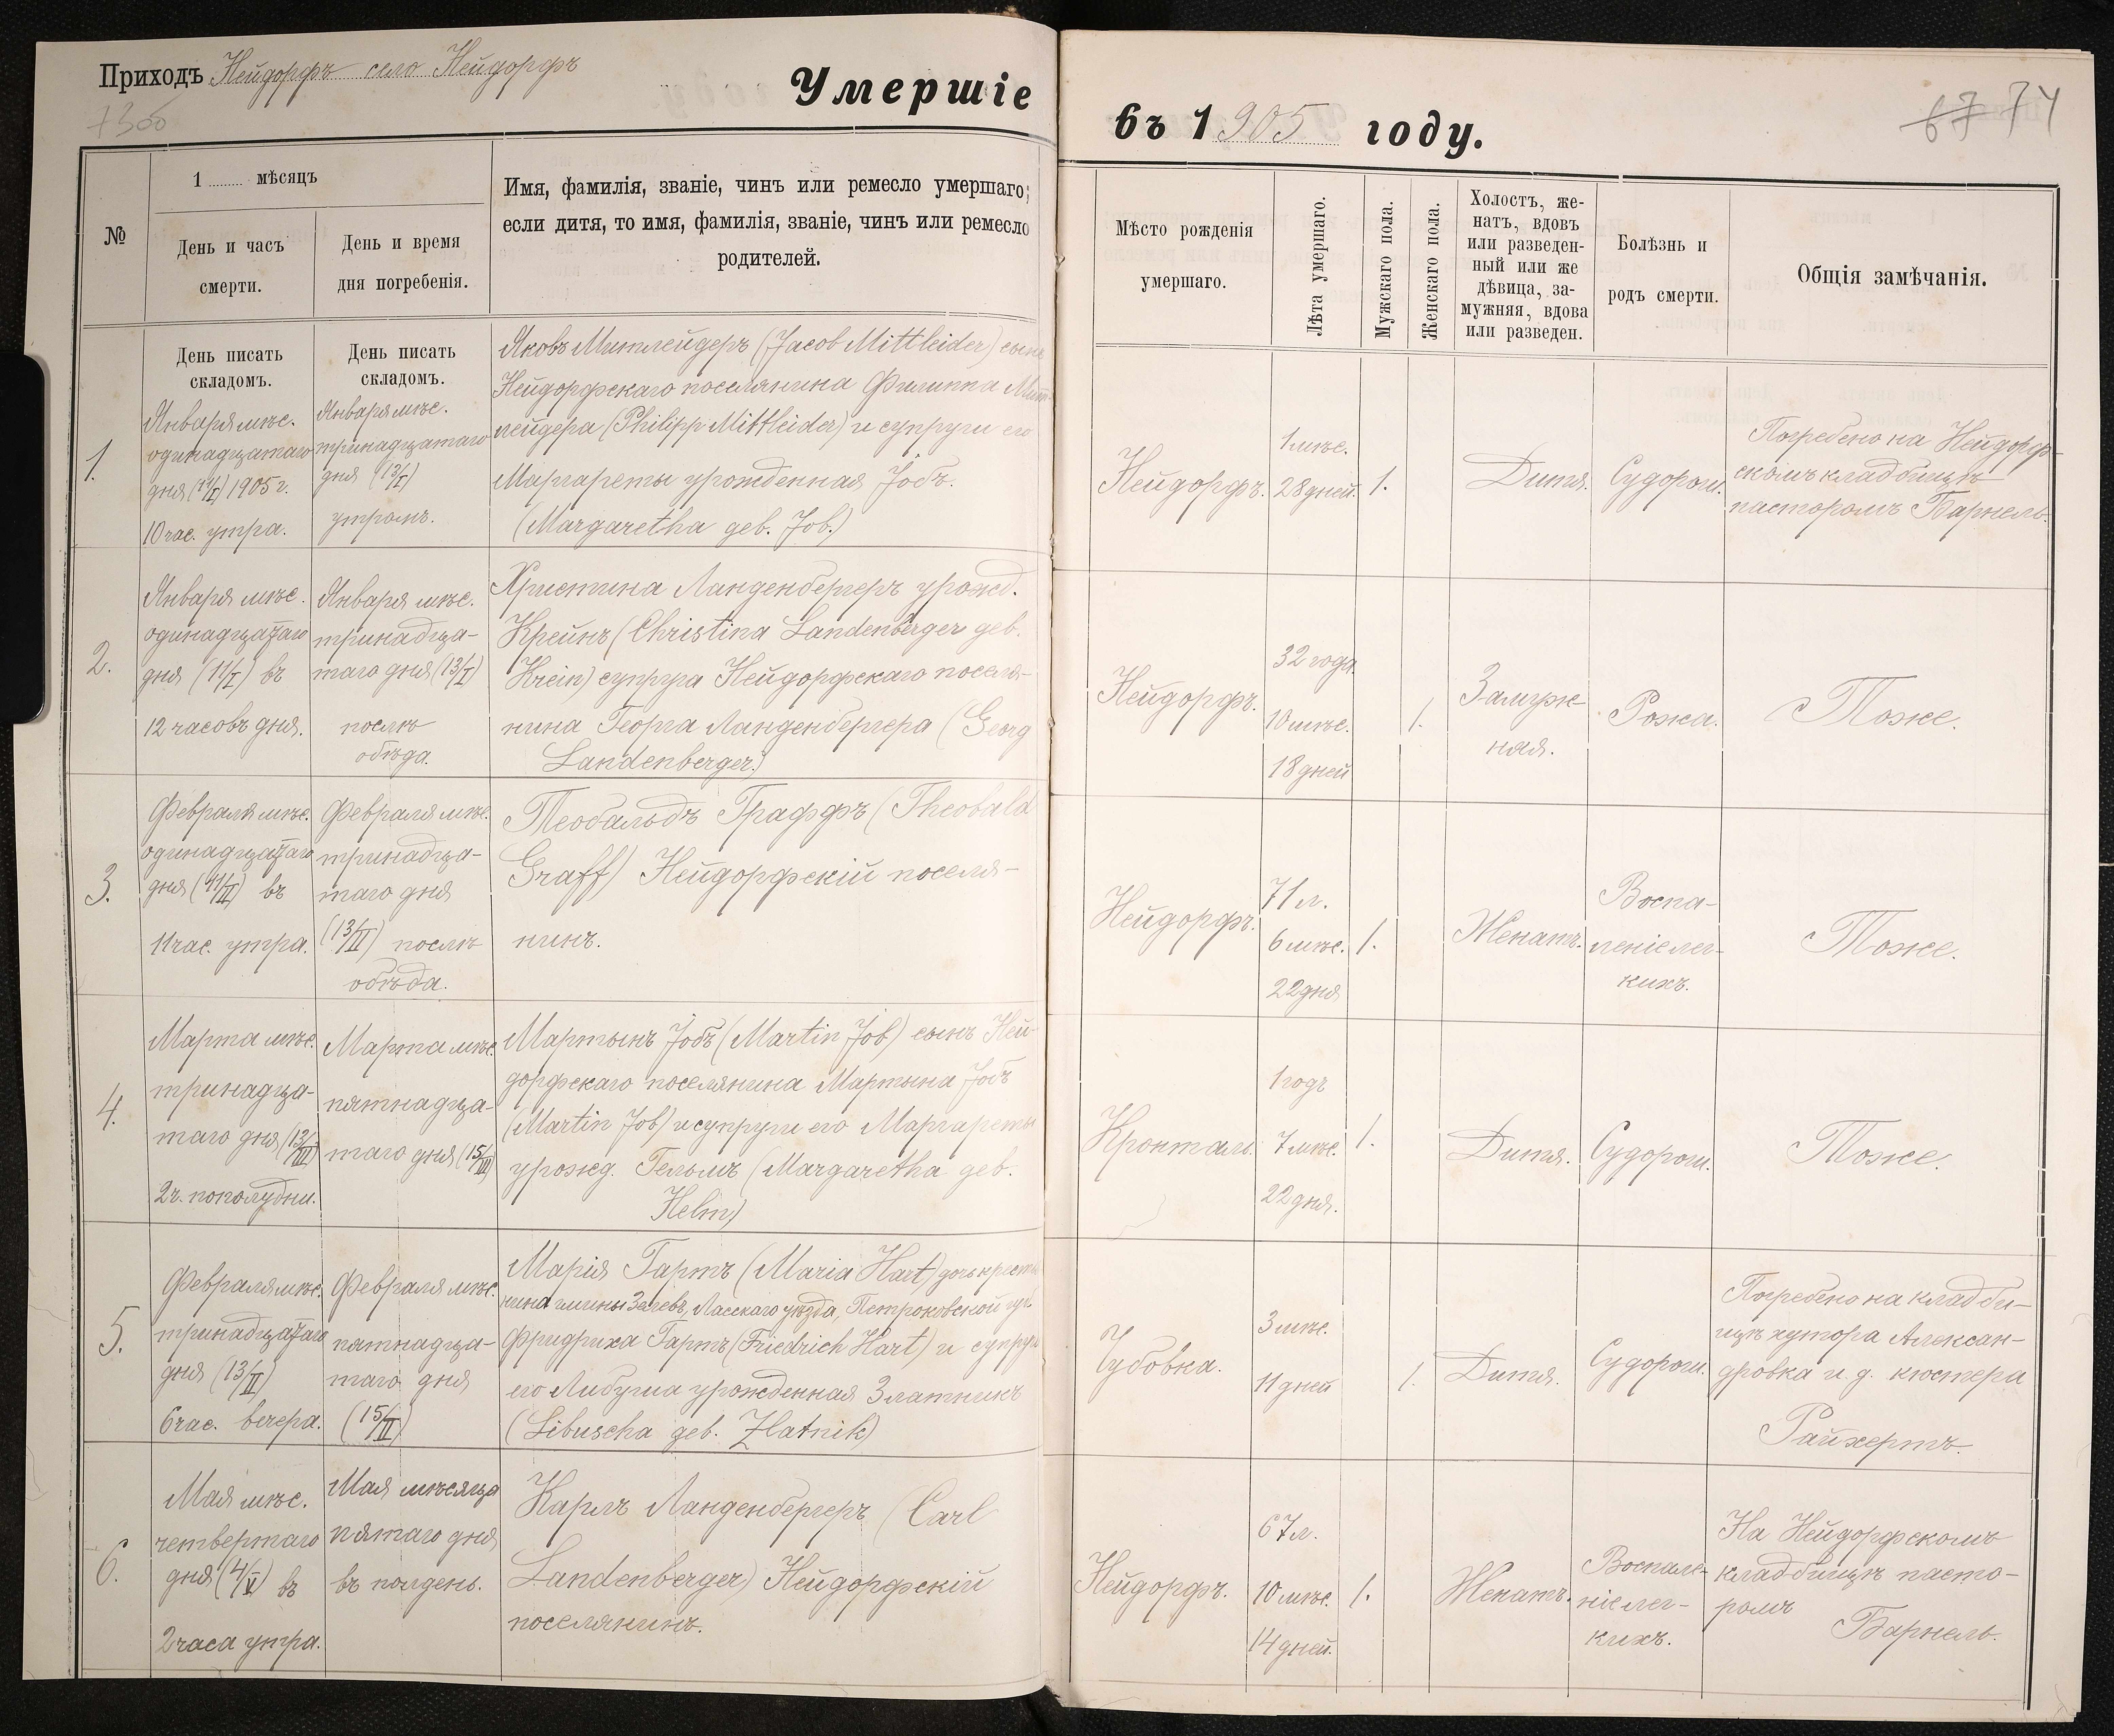 Приходъ Нейдорфъ село Нейдорфъ
73об
Умершіе
въ 1905 году.
67 74
№
1 ........ мѣсяцъ
День и часъ
смерти.
День и время
дня погребенія.
Имя, фамилія, званіе, чинъ или ремесло умершаго;
если дитя, то имя, фамилія, званіе, чинъ или ремесло
родителей.
Мѣсто рожденія
умершаго.
Лѣта умершаго.
Мужскаго пола.
Женскаго пола.
Холостъ, же-
натъ, вдовъ
или разведен-
ный или же
дѣвица, за-
мужняя, вдова
или разведен.
Болѣзнь и
родъ смерти.
Общія замѣчанія.
День писать
складомъ.
День писать
складомъ.
1.
Января мѣс.
одинадцатаго
дня (11/I) 1905 г.
10 час. утра.
Января мѣс.
тринадцатаго
дня (13/I)
утромъ.
Яковъ Митлейдеръ (Jacob Mittleider) сынъ
Нейдорфскаго поселянина Филиппа Мит-
лейдера (Philipp Mittleider) и супруги его
Маргареты урожденная Jобъ.
(Margaretha geb. Job.)
Нейдорфъ.
1 мѣс.
28 дней.
1.
Дитя.
Судорог.
Погребено на Нейдорф-
скомъ кладбищѣ
пасторомъ Барнель.
2.
Января мѣс.
одинадцатаго
дня (11/I) въ
12 часовъ дня.
Января мѣс.
тринадца-
таго дня (13/I)
послѣ
обѣда.
Христина Ланденбергеръ урожд.
Крейнъ (Christina Landenberger geb.
Krein) супруга Нейдорфскаго поселя-
нина Георга Ланденбергера (Georg
Landenberger)
Нейдорфъ.
32 года
10 мѣс.
18 дней
1.
Замуж-
няя.
Рожа.
Тоже.
3.
Февраля мѣс.
одинадцатаго
дня (11/II) въ
11 час. утра.
Февраля мѣс.
тринадца-
таго дня
(13/II) послѣ
обѣда.
Теобальдъ Граффъ (Theobald
Graff) Нейдорфскій поселя-
нинъ.
Нейдорфъ.
71 л.
6 мѣс.
22 дня
1.
Женатъ.
Воспа-
леніе лег-
кихъ.
Тоже.
4.
Марта мѣс.
тринадца-
таго дня (13/III)
2 ч. пополудни.
Марта мѣс.
пятнадца-
таго дня (15/III)
Мартынъ Jобъ (Martin Job) сынъ Ней-
дорфскаго поселянина Мартына Jобъ
(Martin Job) и супруги его Маргареты
урожд. Гельмъ (Margaretha geb.
Helm)
Кронталь.
1 годъ
7 мѣс.
22 дня.
1.
Дитя.
Судорог.
Тоже.
5.
Февраля мѣс.
тринадцатаго
дня (13/II)
6 час. вечера.
Февраля мѣс.
пятнадца-
таго дня
(15/II)
Марія Гартъ (Maria Hart) дочь крестья-
нина гмины Ласскаго уѣзда, Петроковской губ.
Фридриха Гартъ (Friedrich Hart) и супруги
его Либуша урожденная Златникъ
(Libuscha geb. Zlatnik)
Чубовка.
3 мѣс.
11 дней
1.
Дитя.
Судорог.
Погребено на кладби-
щѣ хутора Алексан-
дровка и. д. кюстера
Райхертъ.
6.
Мая мѣс.
четвертаго
дня (4/V) въ
2 часа утра.
Мая мѣсяца
пятаго дня
въ полдень.
Карлъ Ланденбергеръ (Carl
Landenberger) Нейдорфскій
поселянинъ.
Нейдорфъ.
67 л.
10 мѣс.
14 дней.
1.
Женатъ.
Воспале-
ніе лег-
кихъ.
На Нейдорфскомъ
кладбищѣ пасто-
ромъ
Барнель.